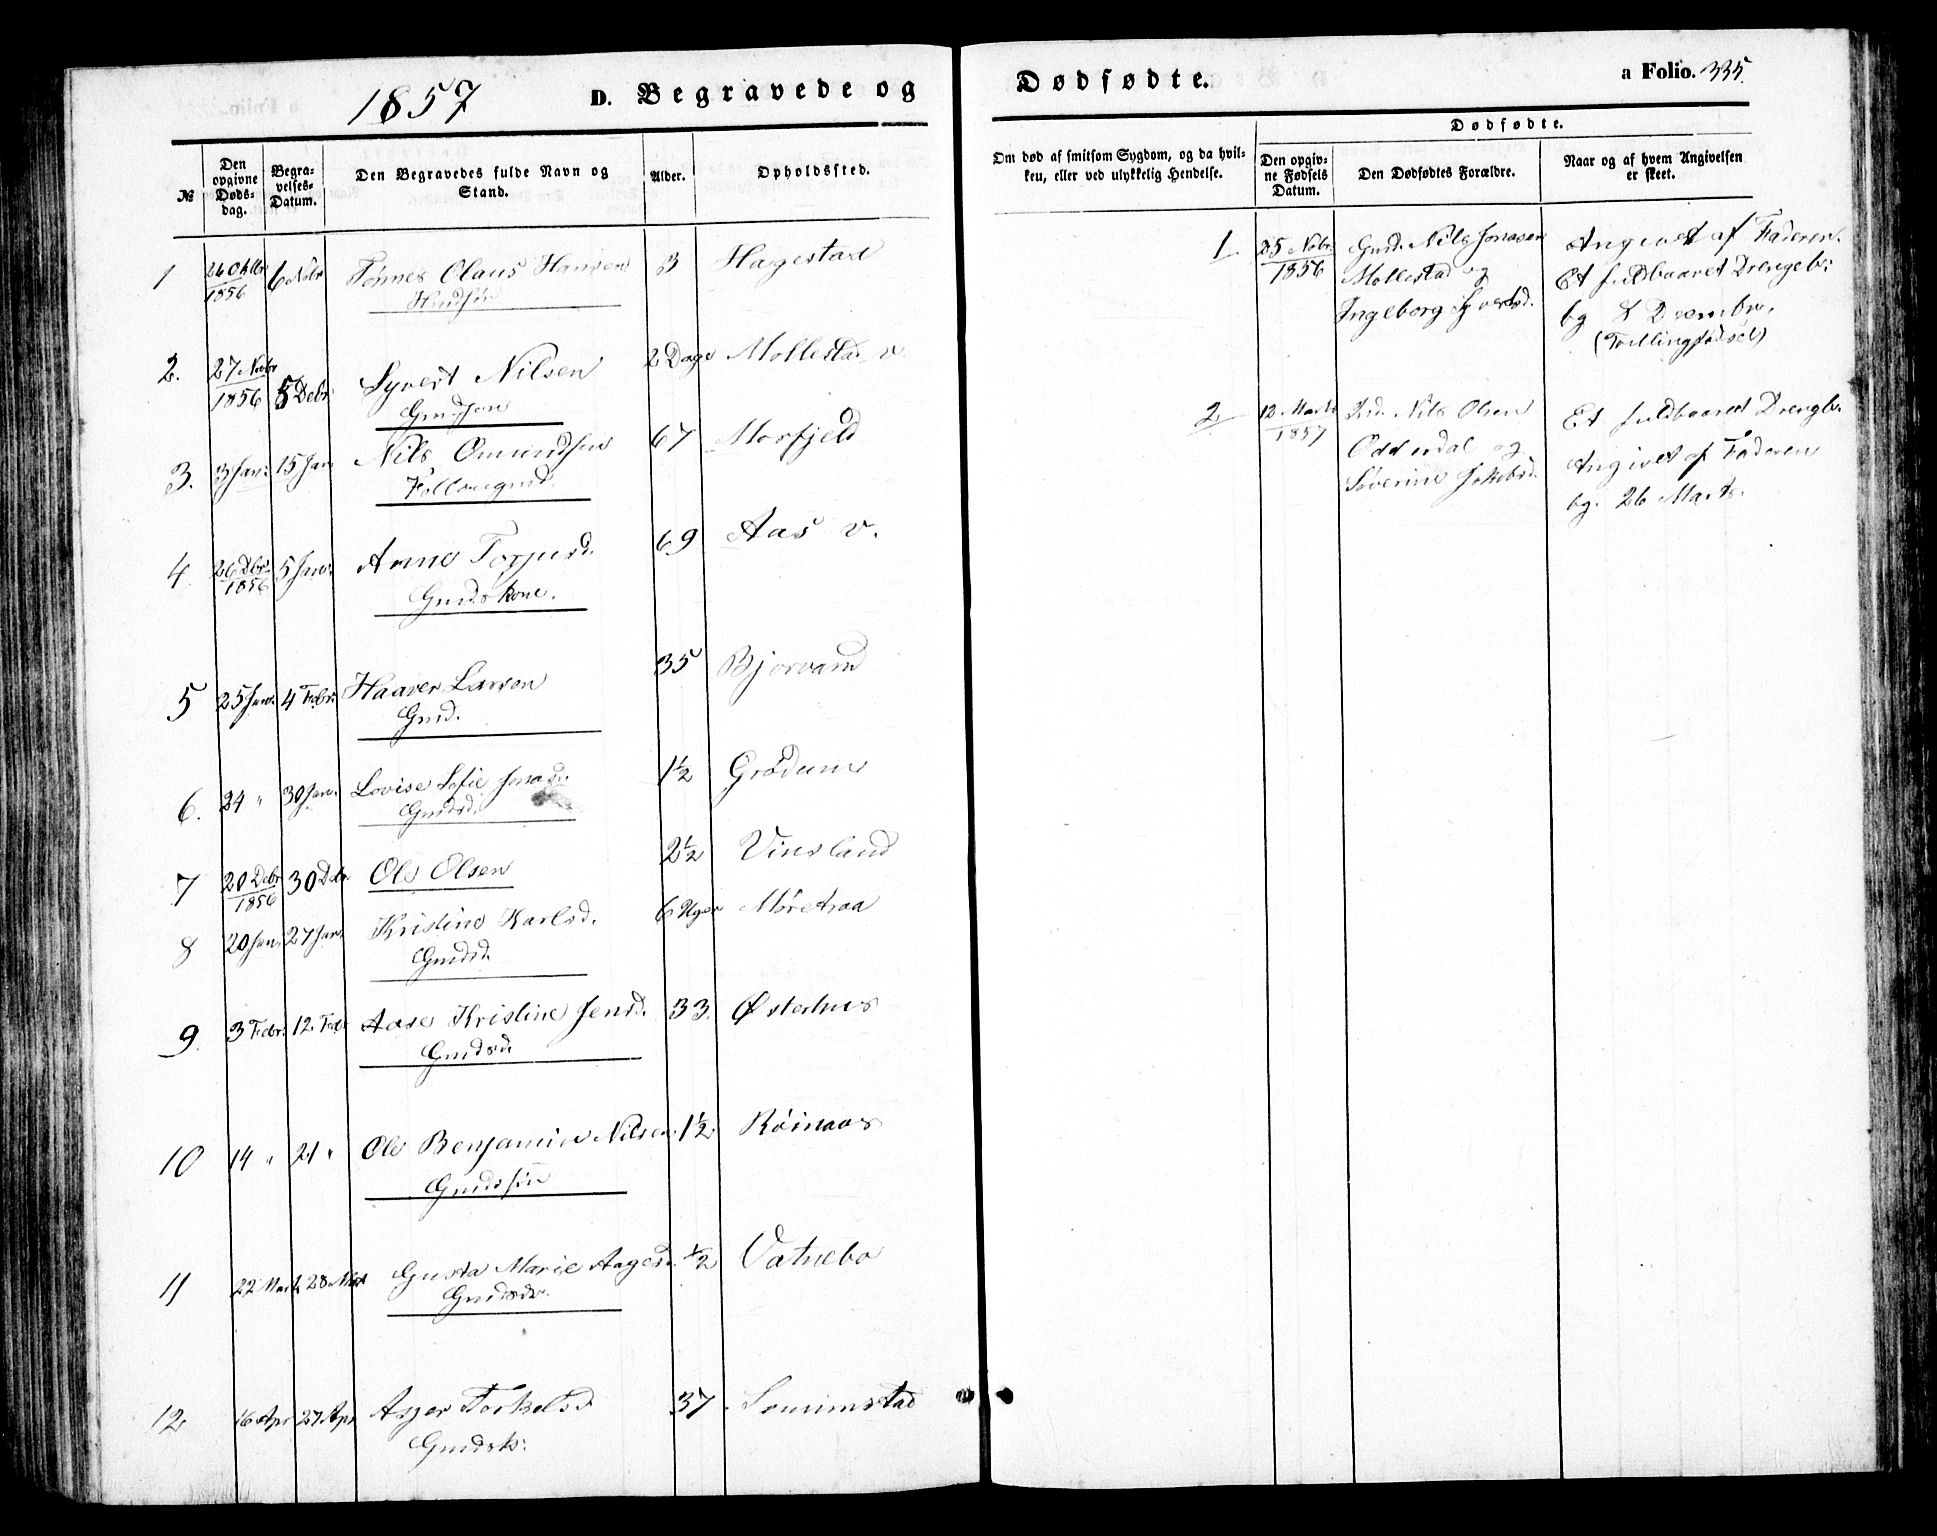 1857 D. Begravede og
№ Den opgivne Dødsdag. Begravelses-Datum. Den Begravedes fulde Navn og Stand. Alder. Opholdssted.
1 26 Oktbr 1856 6 Nobr Tønnes Olaus Hansen 3 Hagestad
2. 27 Nobr 1856 5 Debr Syvert Nilsen 2 Dage Mollestad v.
Gmdssøn
3. 3 Jan: 15 Jan Nils Omundsen 67 Morfjeld
4. 26 Dbr. 1856 5 Jan: Anne Torjusd. 69 Aas v.
Gmdskone.
5 25 Jan. 4 Febr: Haaver Larsen 35 Bjorvand
Gmd.
6. 24 " 30 Jan. Lovise Sofie Jonasd. 1½ Grødum
Gmdsd.
7 20 Debr 1856 30 Debr Ole Olsen 2½ Vinsland
8 20 Jan. 27 Jan. Kristine Karlsd. 6 Uger Møretraa
Gmdsd.
9. 3 Febr: 12 Feb Aase Kristine Jensd. 33. Østerhus
Gmdsd.
10 14 " 21 " Ole Benjamin Nilsen 1½ Røinaas
Gmdssøn
11 22 Marts 28 Mart Gusta Marie Aagesd. ½ Vatnebo
Gmdsdr.
12 16 Apr 27 Apr Asger Torkelsd 37 Somimstad
Gmdsk:
Dødsfødte. a Folio. 335.
Om død af smitsom Sygdom, og da hvilken, eller ved ulykkelig Hendelse. Dødfødte.
Den opgivne Fødsels Datum. Den Dødfødtes Forældre. Naar og af hvem Angivelsen er skeet.
1. 25 Nobr 1856 Gmd. Nils Jonasen Angivet af Faderen.
Mollestad og Et fuldbaaret Drengeb:
Ingeborg Syvertsd. bg 8 Decembr.
(Tvillingfødsel)
2 12 Marts 1857 Nils Olsen Et fuldbaaret Drengb.
Odderdal og Angivet af Faderen
Severine Jakobsd. bg. 26 Marts.